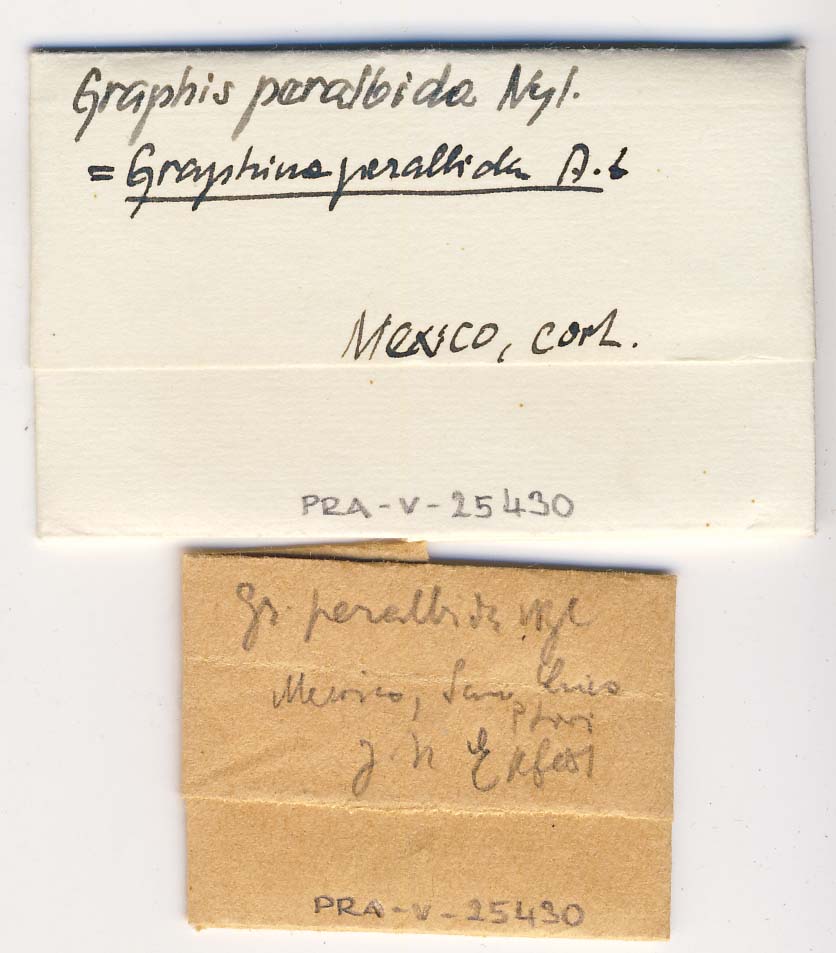 Graphis peralbida Nyl.
= Graphina peralbida
Mexico, cort.
PRA-V-25430
Gr. peralbida Nyl
Mexico, San
J. N
PRA-V-25430